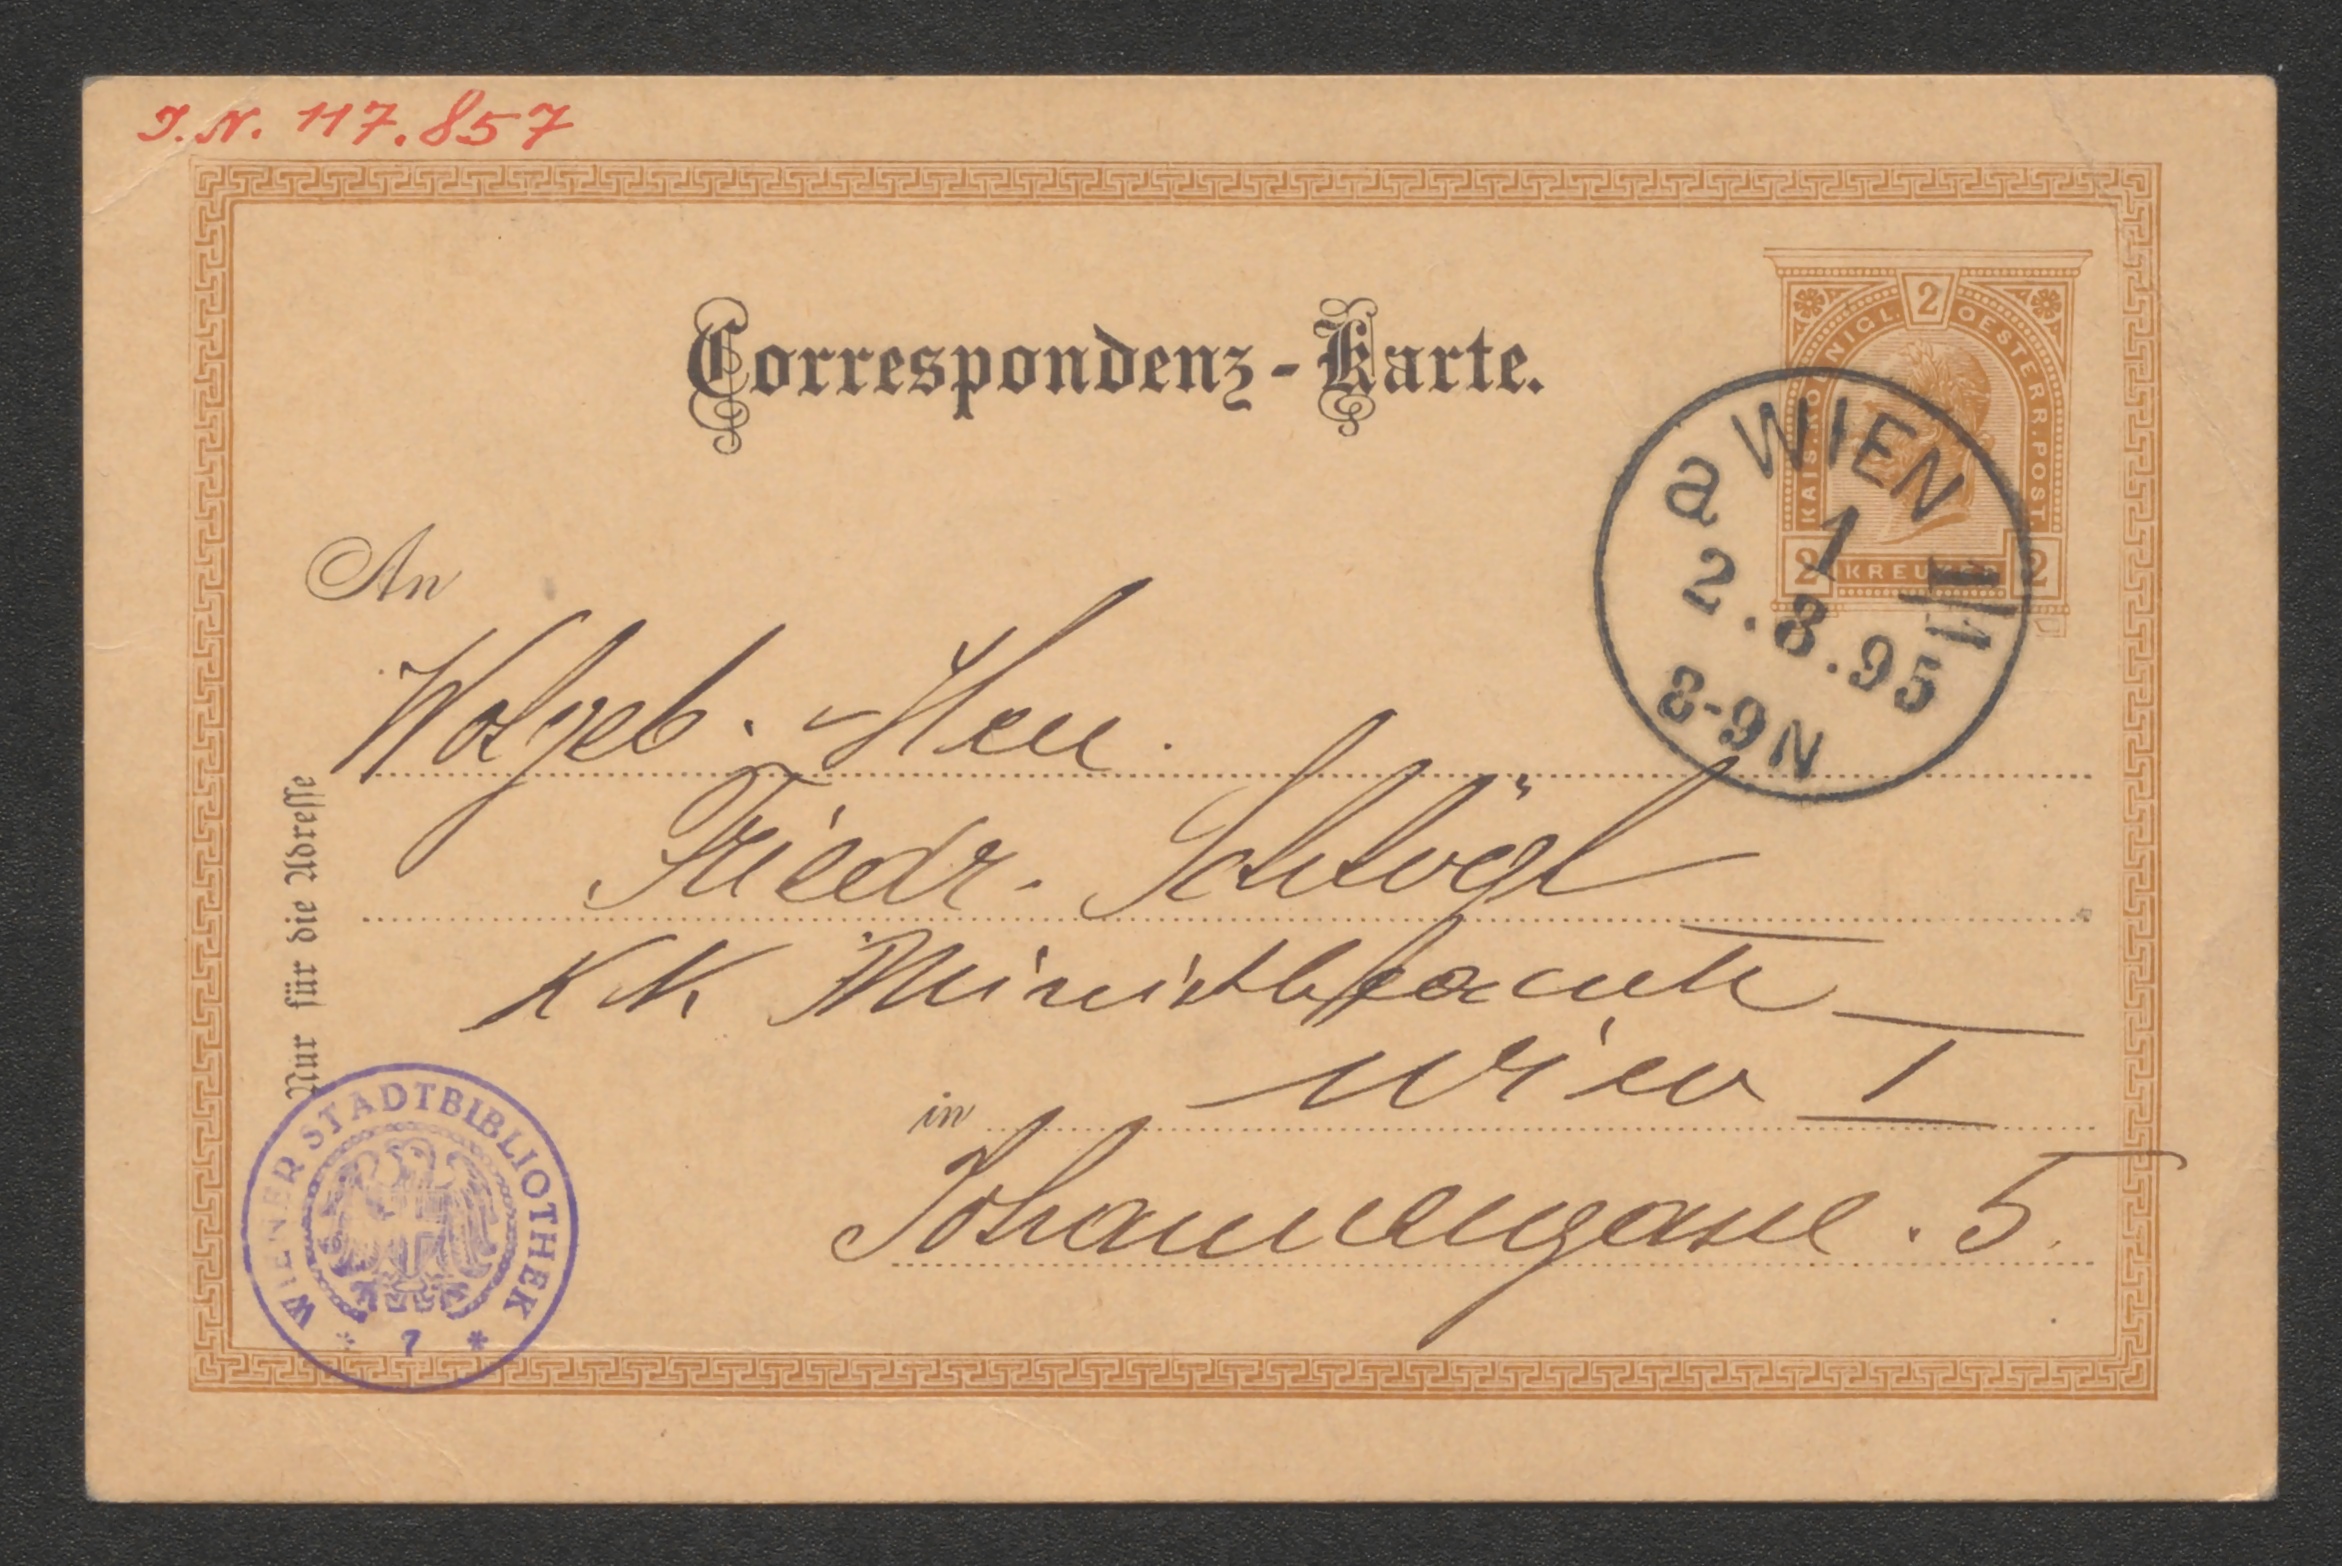 J.N. 117.857
Correspondenz-Karte.
KAIS. KOENIGL. 2 OESTERR. POST.
2 KREUZER 2
a WIEN 1
2.8.95
8-9N
An
Wolgeb. Herr.
Friedr. Schlögl
KK Ministbeamte
in Wien I
Johannengasse. 5.
Nur für die Adresse
WIENER STADTBIBLIOTHEK
* 7 *